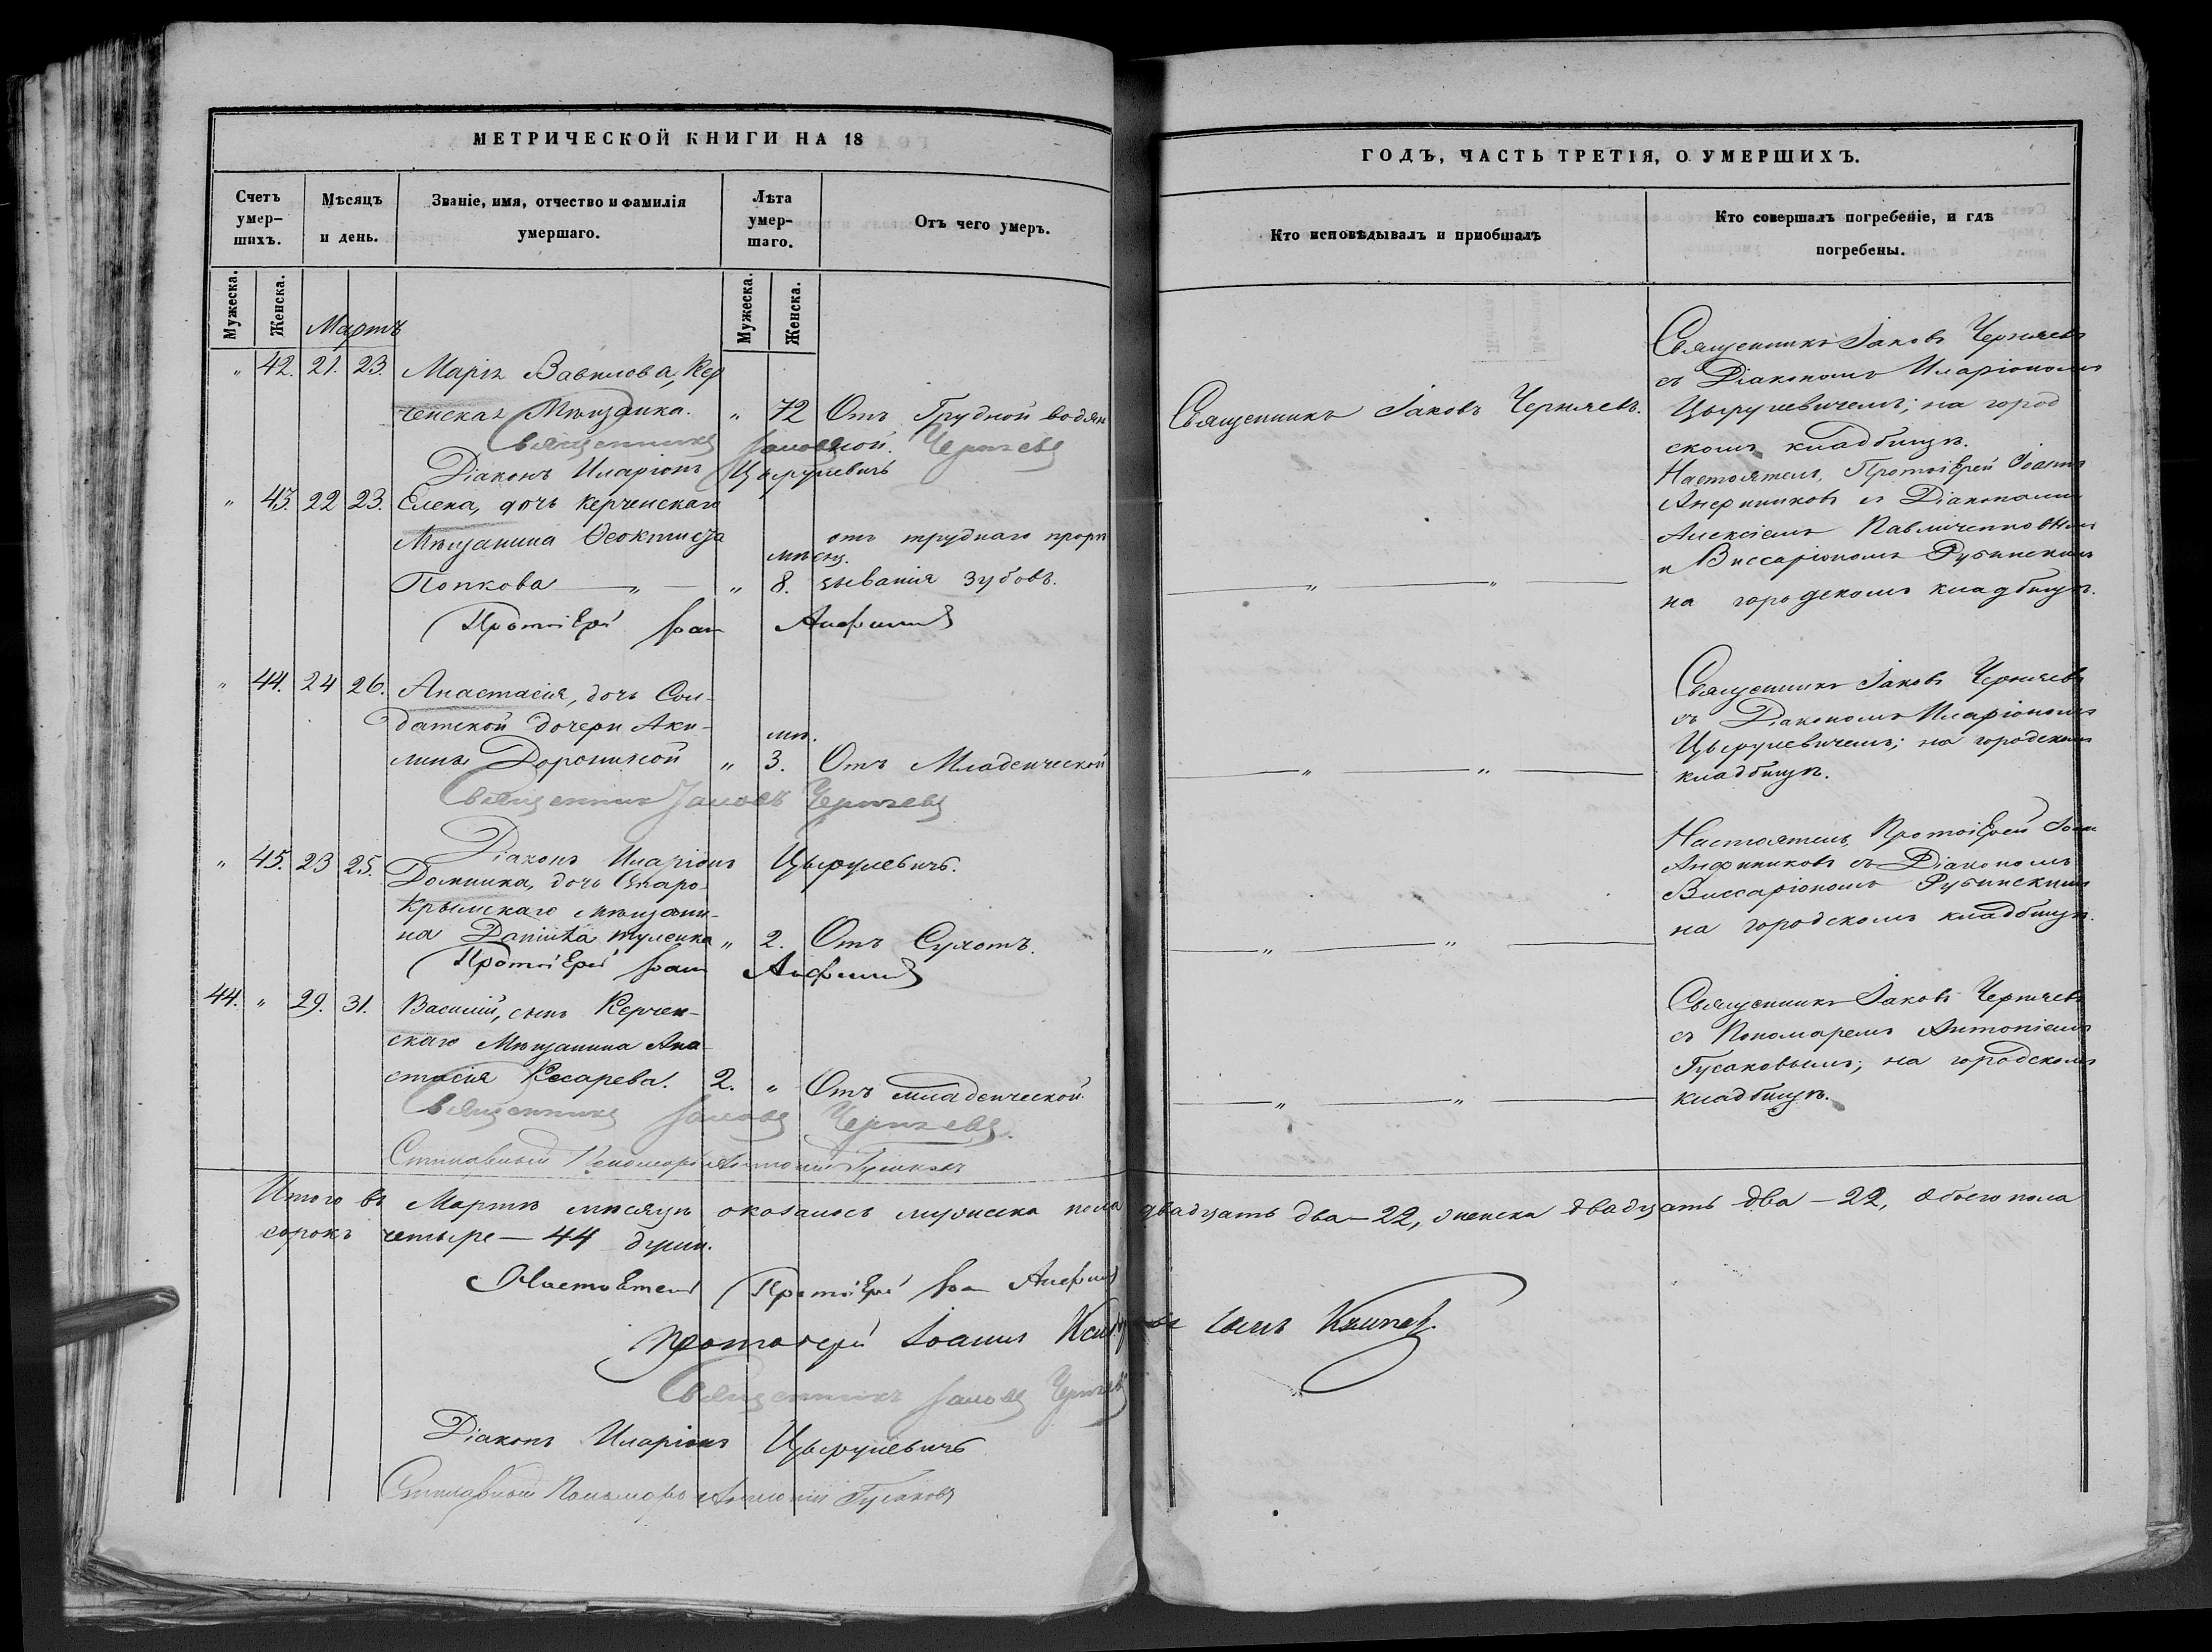 МЕТРИЧЕСКОЙ КНИГИ НА 18
Счетъ умер-шихъ.
Мѣсяцъ и день.
Званіе, имя, отчество и фамилія умершаго.
Лѣта умер-шаго.
Отъ чего умеръ.
Мужеска.
Женска.
Мужеска.
Женска.
Мартъ
" 42. 21. 23. Марія Вавилова, Кер
ченская Мѣщанка. " 72 Отъ Грудной водян
Священникъ Іаковъ ной. Черняевъ
Діаконъ Иларіонъ Цырулевичъ
" 43. 22 23. Елена, дочь Керченскаго
Мѣщанина Ѳеоктиста отъ труднаго прорѣ
мѣсяц.
Попкова — " — " 8. зыванія зубовъ.
ПротоіЕрей Іоан
" 44. 24 26. Анастасія, дочь Сол-
датской дочери Аку-
мѣ.
лины Дорониной " 3. Отъ Младенческой
Священникъ Іаковъ Черняевъ
Діаконъ Иларіонъ Цырулевичъ.
" 45. 23 25. Домника, дочь Старо-
Крымскаго мѣщани-
на " 2. Отъ Сухотъ.
ПротоіЕрей Іоан
44. " 29. 31. Василій, сынъ Керчен-
скаго Мѣщанина Ана-
стасія Кесарева. 2. " Отъ младенческой.
Священникъ Іаковъ Черняевъ.
Пономарь Антоній Гусаковъ
Итого въ Мартѣ мѣсяцѣ оказалось мужеска пола двадцать два — 22, женска двадцать два — 22, обоего пола
сорокъ четыре — 44 души.
Настоятель ПротоіЕрей Іоан
Протоіерей Іоаннъ
Священникъ Іаковъ Черняевъ
Діаконъ Иларіонъ Цырулевичъ
Пономарь Антоній Гусаковъ
ГОДЪ, ЧАСТЬ ТРЕТІЯ, О УМЕРШИХЪ.
Кто исповѣдывалъ и пріобщалъ
Кто совершалъ погребеніе, и гдѣ погребены.
Священникъ Іаковъ Черняевъ.
Священникъ Іаковъ Черняевъ
съ Діакономъ Иларіономъ
Цырулевичемъ; на город
скомъ кладбищѣ.
Настоятель, ПротоіЕрей Іоаннъ
Анфиниковъ съ Діаконами
Алексіемъ Павличенковымъ
и Виссаріономъ Рубинскимъ
на городскомъ кладбищѣ.
— " — " —
Священникъ Іаковъ Черняевъ
съ Діакономъ Иларіономъ
Цырулевичемъ; на городскомъ
кладбищѣ.
— " — " —
Настоятель, ПротоіЕрей Іоан
Анфиниковъ съ Діакономъ
Виссаріономъ Рубинскимъ
на городскомъ кладбищѣ.
— " — " —
Священникъ Іаковъ Черняевъ
съ Пономаремъ Антоніемъ
Гусаковымъ; на городскомъ
кладбищѣ.
— " — " —